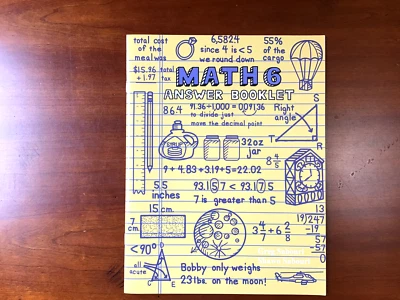 total cost
of the
meal was
$15.96 total
+1.97 tax
6,5824
since 4 is <5
we round down
55%
of the
cargo
MATH 6
ANSWER BOOKLET
864
91.36÷1,000 =
to divide just
move the decimal point
Right
angle
S
T
R
SYRUP
32oz
jar
8 4/5
9 + 4.83 + 3.19 + 5 = 22.02
5.5
inches
93.157 < 93.175
7 is greater than 5
15cm.
7
cm.
3 4/7 + 6 2/8
13
19)247
-19
57
-57
0
<90°
all
acute
C
E
Bobby only weighs
23 lbs. on the moon!